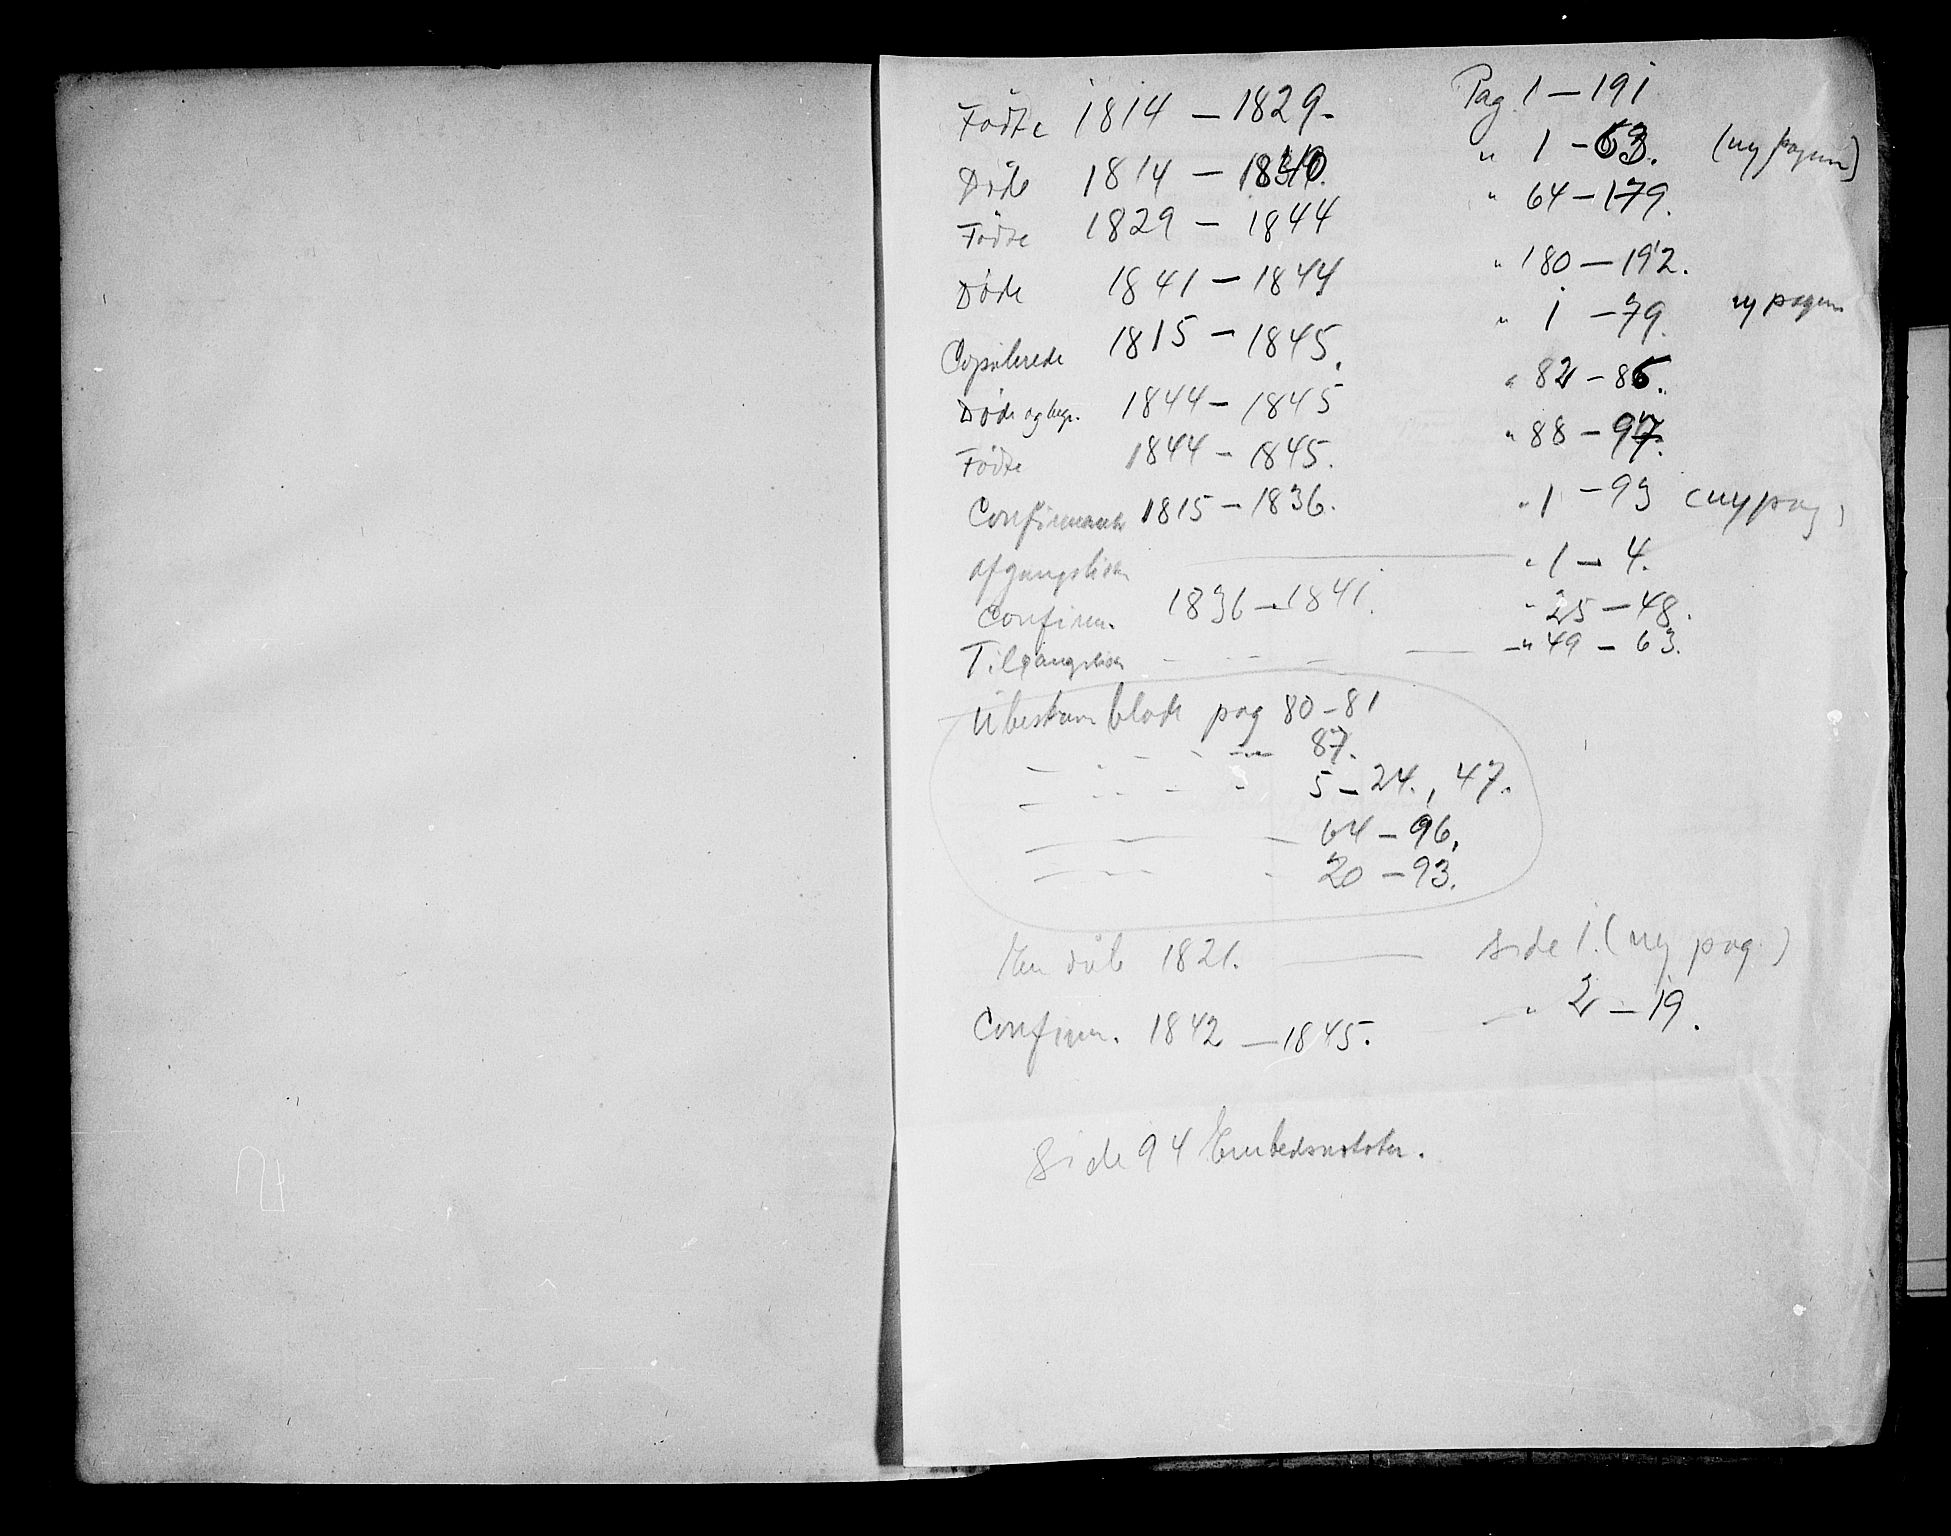 Fødte 1814 – 1829. Pag. 1 – 191
Døde 1814 – 1840. " 1 – 63. (ny pagin)
Fødte 1829 – 1844 " 64 – 179.
Døde 1841 – 1844 " 180 – 192.
Copulerede 1815 – 1845. " 1 – 79. ny pagin
Døde og begr. 1844 – 1845 " 82 – 86.
Fødte 1844 – 1845. " 88 – 97.
Confirmerede 1815 – 1836. " 1 – 93 (ny pag)
Afgangsliste " 1 – 4.
Confirm. 1836 – 1841. " 25 – 48.
Tilgangsliste – – – " 49 – 63.
Ubeskrevne blade pag 80 – 81
– " – " – 87.
– " – " – 5 – 24., 47.
– – – 64 – 96.
– – – 20 – 93.
En døbt 1821. – side 1. (ny pag.)
Confirm. 1842 – 1845. – " 2 – 19.
Side 94 Embedsnotater.